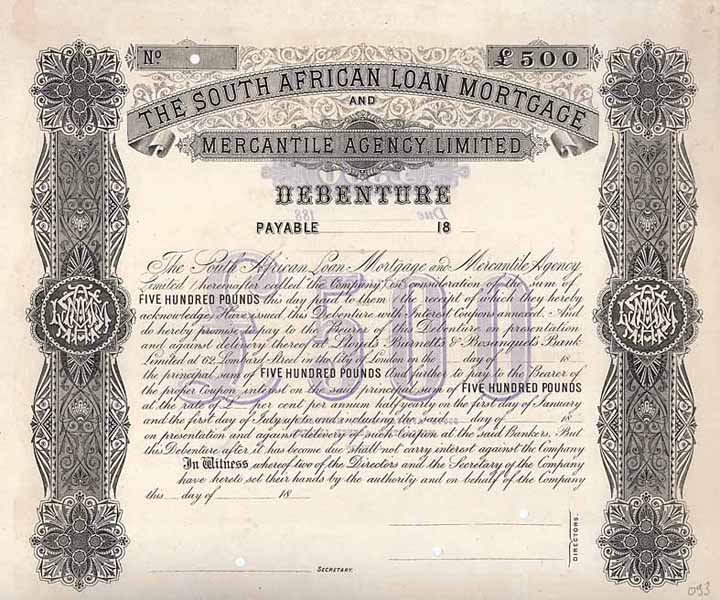 No.
£500
THE SOUTH AFRICAN LOAN MORTGAGE
AND
MERCANTILE AGENCY, LIMITED
DEBENTURE
Due 188
PAYABLE 18
The South African Loan Mortgage and Mercantile Agency
Limited (hereafter called the Company) in consideration of the sum of
FIVE HUNDRED POUNDS this day paid to them the receipt of which they hereby
acknowledge Have issued this Debenture with Interest Coupons annexed. And
do hereby promise to pay to the Bearer of this Debenture on presentation
and against delivery thereof at Lloyds Barnetts & Bosanquets Bank
Limited at 62 Lombard Street in the City of London on the day of 18
the principal sum of FIVE HUNDRED POUNDS And further to pay to the Bearer of
the proper Coupon interest on the said principal sum of FIVE HUNDRED POUNDS
at the rate of £ per cent per annum half yearly on the first day of January
and the first day of July up to and including the said day of 18
on presentation and against delivery of such Coupon at the said Bankers. But
this Debenture after it has become due shall not carry interest against the Company
In Witness whereof two of the Directors and the Secretary of the Company
have hereto set their hands by the authority and on behalf of the Company
this day of 18
£500
DIRECTORS.
SECRETARY.
093